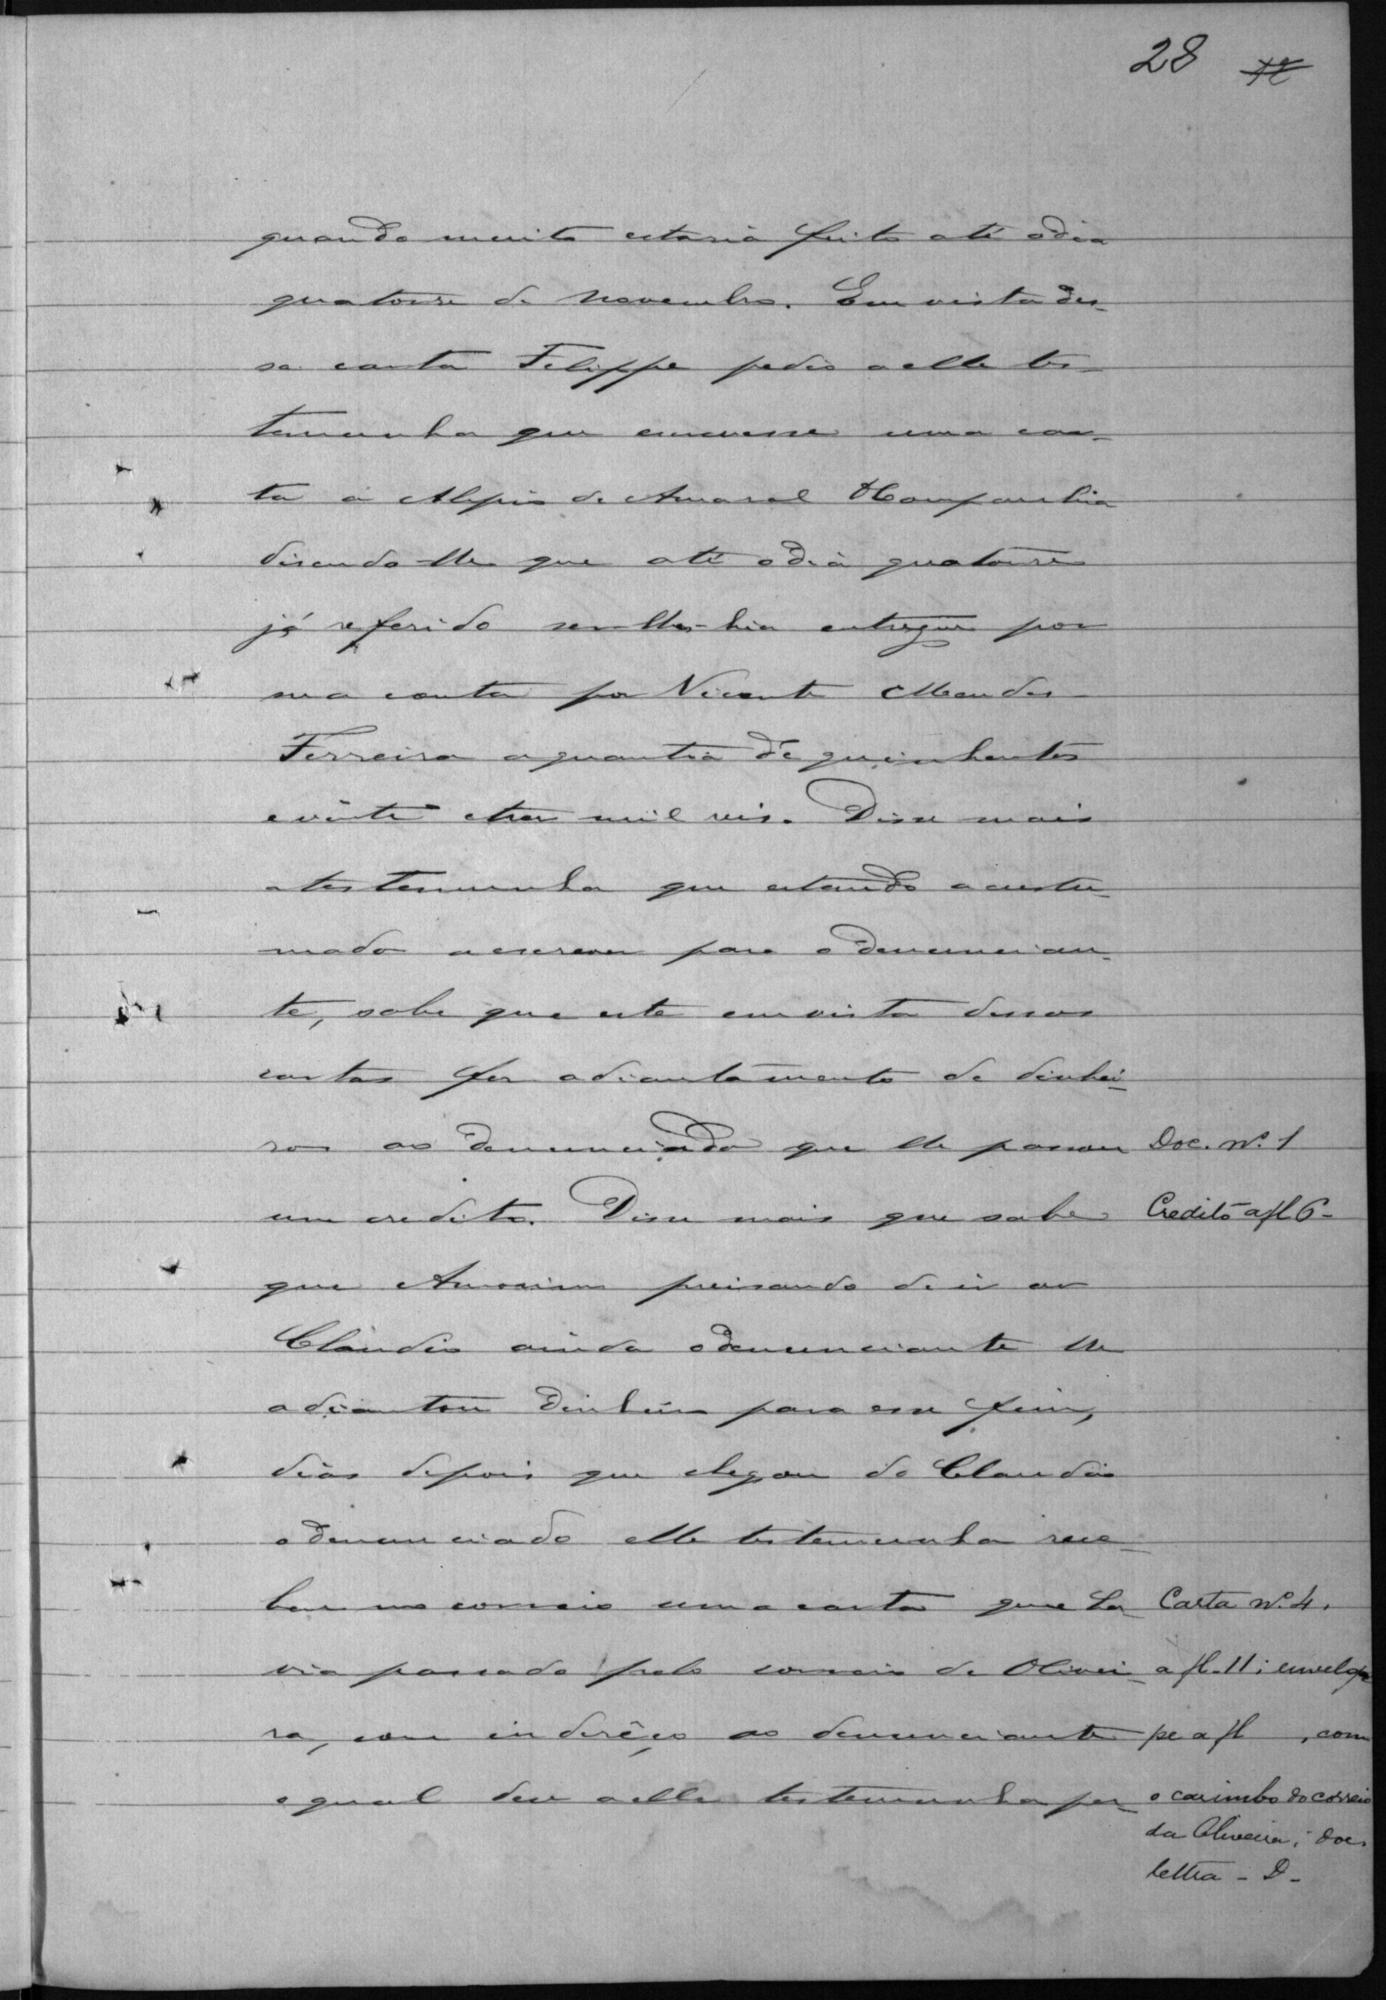 28
quando muito estaria feito até o dia
quatorse de novembro. Em vista des-
sa carta Felippe pedio a elle tes-
temunha que escrevesse uma car-
ta a Alipio de Amaral & Companhia
disendo-lhe que até o dia quatorse
já referido ser-lhes-hia entregue por
sua conta por Vicente Mendes
Ferreira a quantia de quinhentos
e vinte e tres mil reis. Disse mais
a testemunha que estando acustu-
mado a escrever para o denuncian-
te, sabe que este em vista dessas
cartas fez adiantamento de dinhei-
ros ao denunciado que lhe passou
Doc. nº 1
um credito. Disse mais que sabe
Credito a fl 6-
que Amorim precisando de ir ao
Claudio ainda o denunciante lhe
adiantou dinheiro para esse fim,
dias depois que chegou do Claudio
o denunciado elle testemunha rece-
beu no correio uma carta que ha-
Carta nº 4,
via passado pelo correio de Olivei-
a fl. 11; envelop
ra, com indereço ao denunciante
pe a fl , com
o qual deu a elle testemunha per-
o carimbo do correio
da Oliveira; doc.
lettra - D -